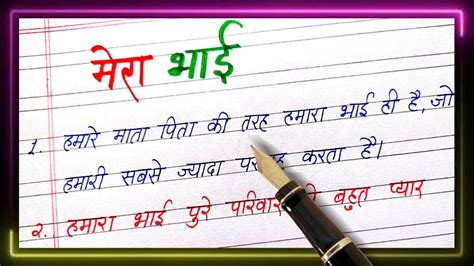 मेरा भाई
1. हमारे माता पिता की तरह हमारा भाई ही है, जो
हमारी सबसे ज्यादा करता है।
२. हमारा भाई पुरे परिवार बहुत प्यार